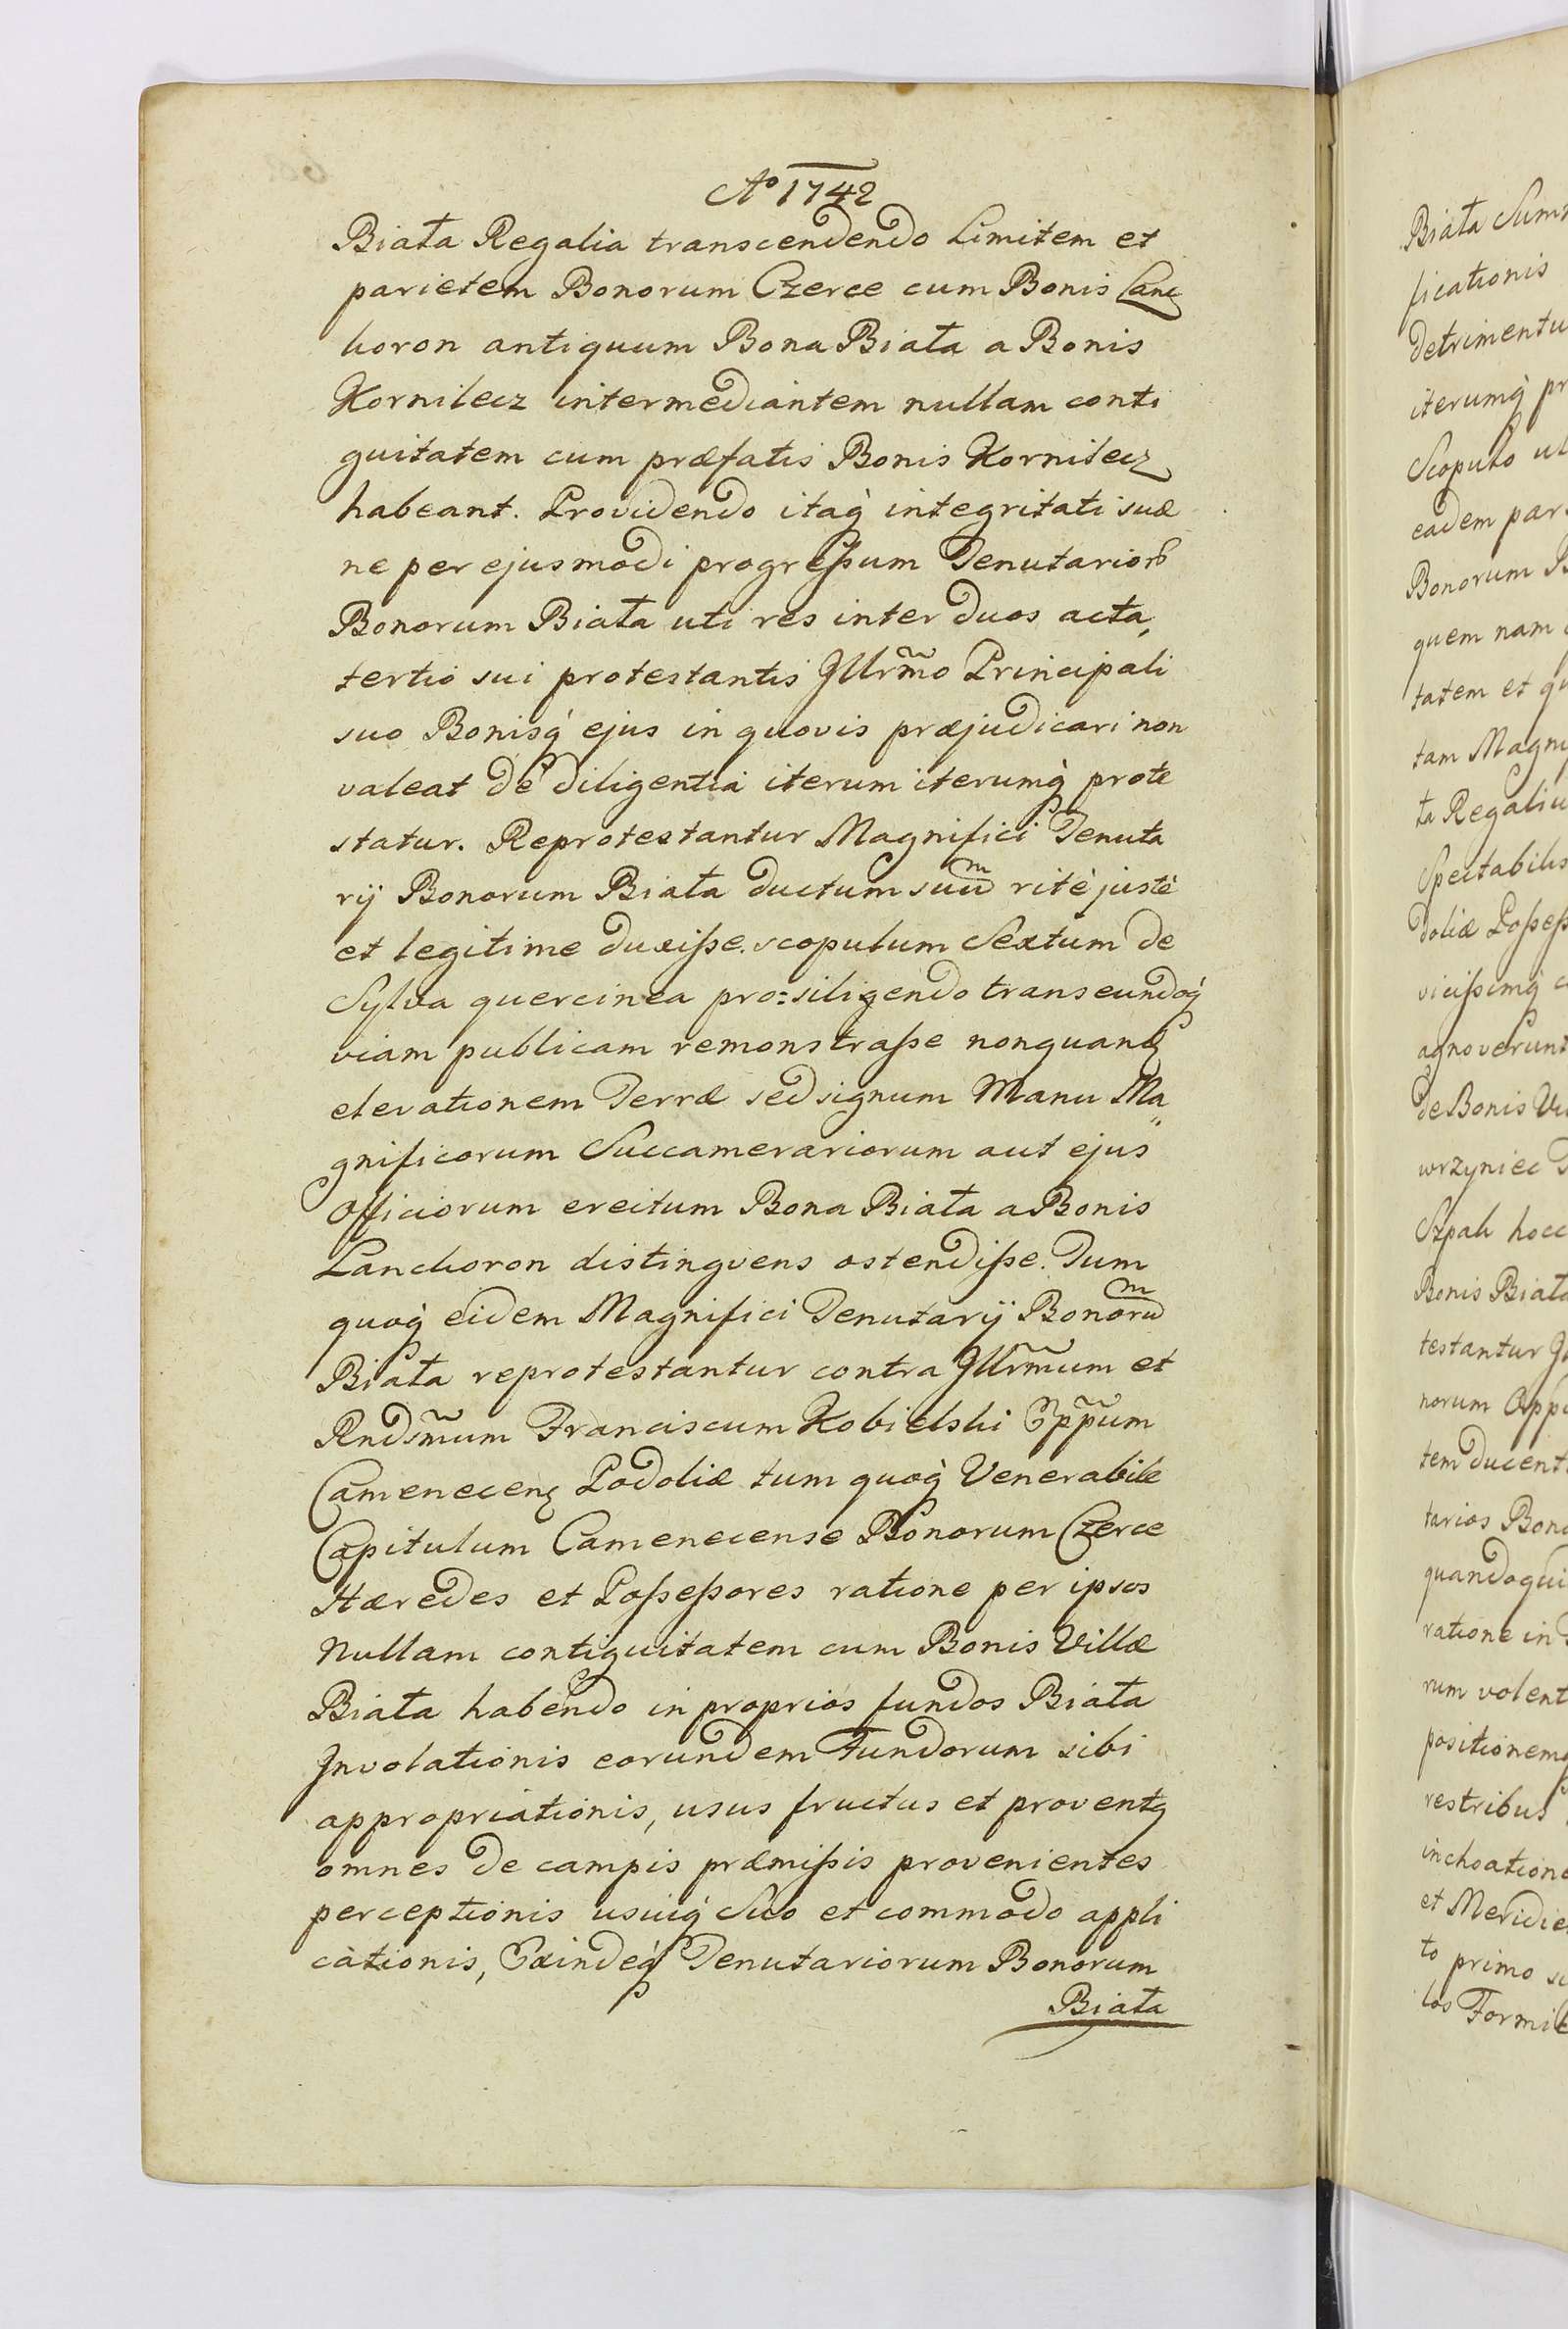 Aº 1742
Biała Regalia transcendendo Limitem et
parietem Bonorum Czerce cum Bonis Lanc
horon antiquum Bona Biała a Bonis
Kornilecz intermediantem nullam conti
guitatem cum præfatis Bonis Kornilecz
habeant. Providendo itaq̀ integritati suæ
ne per ejusmodi progreſsum Tenutarior
Bonorum Biała uti res inter duos acta,
tertio sui protestantis Jllrm̃o Principali
suo Bonisq̀ ejus in quovis præjudicari non
valeat de diligentia iterum iterumq̀ prote
statur. Reprotestantur Magnifici Tenuta
rij Bonorum Biała ductum suum ritè justè
et legitime duxiſse. scopulum Sextum de
Sylva quercinea pro=siligendo transeundoq̀
viam publicam remonstraſse nonquand
elevationem Terræ sed signum Manu Ma„
gnificorum Succamerariorum aut ejus
officiorum erectum Bona Biała a Bonis
Lanchoron distingvens ostendiſse. Tum
quoq̀ eidem Magnifici Tenutarij Bonorum
Biała reprotestantur contra Jllrm̃um et
Rndsm̃um Franciscum Kobielski Epp̃um
Camenecenę Podoliæ tum quoq̀ Venerabile
Capitulum Camenecense Bonorum Czerce
Hæredes et Poſseſsores ratione per ipsos
Nullam contiguitatem cum Bonis Villæ
Biała habendo in proprios fundos Biała
Jnvolationis eorundem Fundorum sibi
appropriationis, usus fructus et proventq
omnes de campis præmiſsis provenientes
perceptionis usuiq̀ Suo et commodo appli
cationis, Exindeq̀ Tenutariorum Bonorum
Biała
Biała Sum
ficationis
detrimentu
iterumq̀ pr
Scopulo ul
eadem par
Bonorum B
quem nam
tatem et qu
tam Magni
ła Regaliu
Spectabilis
doliæ Poſseſs
viciſsimq̀ c
agnoverunt
de Bonis Vi
wrzyniec
Szpak hocc
Bonis Biała
testantur Jl
norum Opp
tem ducent
tarios Bono
quandoqui
ratione in
rum volent
positionemq
restribus
inchoatione
et Meridie
to primo
los Formi